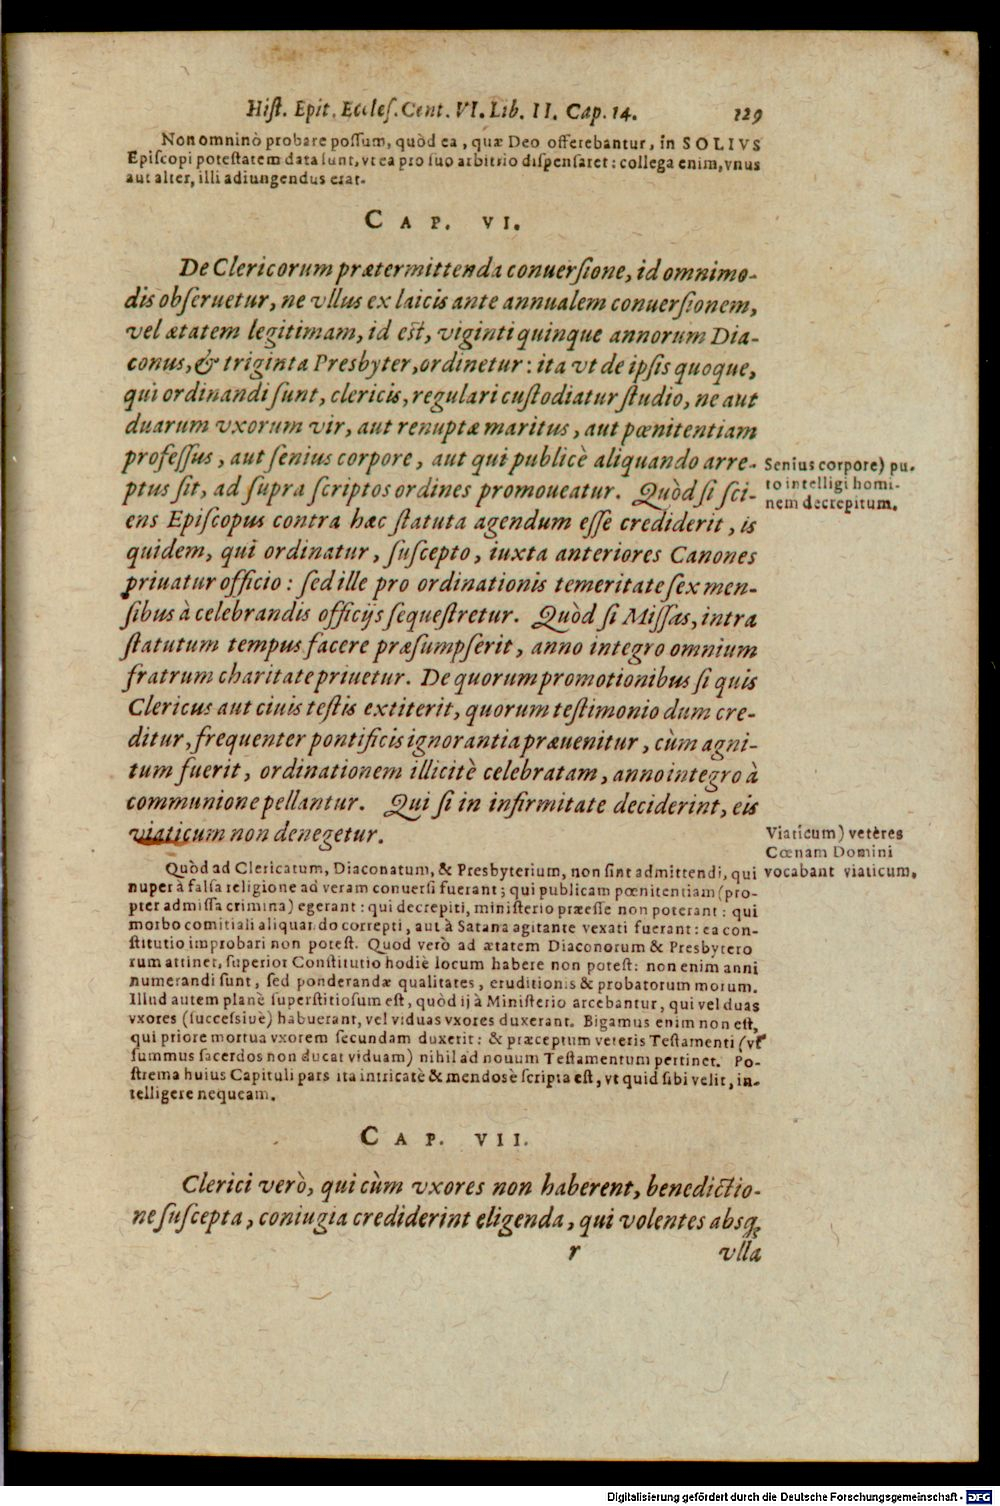 Hist. Epit. Eccles. Cent. VI. Lib. II. Cap. 14. 129
Non omninò probare possum, quòd ea, quæ Deo offerebantur, in SOLIVS
Episcopi potestatem data sunt, vt ea pro suo arbitrio dispensaret: collega enim, vnus
aut alter, illi adiungendus erat.
CAP. VI.
De Clericorum prætermittenda conuersione, id omnimo-
dis obseruetur, ne vllus ex laicis ante annualem conuersionem,
vel ætatem legitimam, id est, viginti quinque annorum Dia-
conus, & triginta Presbyter, ordinetur: ita vt de ipsis quoque,
qui ordinandi sunt, clericis, regulari custodiatur studio, ne aut
duarum vxorum vir, aut renuptæ maritus, aut pœnitentiam
professus, aut senius corpore, aut qui publicè aliquando arre-
ptus sit, ad supra scriptos ordines promoueatur. Quòd si sci-
ens Episcopus contra hæc statuta agendum esse crediderit, is
quidem, qui ordinatur, suscepto, iuxta anteriores Canones
priuatur officio: sed ille pro ordinationis temeritate sex men-
sibus à celebrandis officijs sequestretur. Quòd si Missas, intra
statutum tempus facere præsumpserit, anno integro omnium
fratrum charitate priuetur. De quorum promotionibus si quis
Clericus aut ciuis testis extiterit, quorum testimonio dum cre-
ditur, frequenter pontificis ignorantia præuenitur, cùm agni-
tum fuerit, ordinationem illicitè celebratam, anno integro à
communione pellantur. Qui si in infirmitate deciderint, eis
viaticum non denegetur.
Senius corpore) pu-
to intelligi homi-
nem decrepitum.
Viaticum) vetères
Cœnam Domini
vocabant viaticum.
Quòd ad Clericatum, Diaconatum, & Presbyterium, non sint admittendi, qui
nuper à falsa religione ad veram conuersi fuerant; qui publicam pœnitentiam (pro-
pter admissa crimina) egerant: qui decrepiti, ministerio præesse non poterant: qui
morbo comitiali aliquando correpti, aut à Satana agitante vexati fuerant: ea con-
stitutio improbari non potest. Quod verò ad ætatem Diaconorum & Presbytero
rum attinet, superior Constitutio hodiè locum habere non potest: non enim anni
numerandi sunt, sed ponderandæ qualitates, eruditionis & probatorum morum.
Illud autem planè superstitiosum est, quòd ij à Ministerio arcebantur, qui vel duas
vxores (successiuè) habuerant, vel viduas vxores duxerant. Bigamus enim non est,
qui priore mortua vxorem secundam duxerit: & præceptum veteris Testamenti (vt
summus sacerdos non ducat viduam) nihil ad nouum Testamentum pertinet. Po-
strema huius Capituli pars ita intricatè & mendosè scripta est, vt quid sibi velit, in-
telligere nequeam.
CAP. VII.
Clerici verò, qui cùm vxores non haberent, benedictio-
ne suscepta, coniugia crediderint eligenda, qui volentes absq;
r vlla
Digitalisierung gefördert durch die Deutsche Forschungsgemeinschaft - DFG